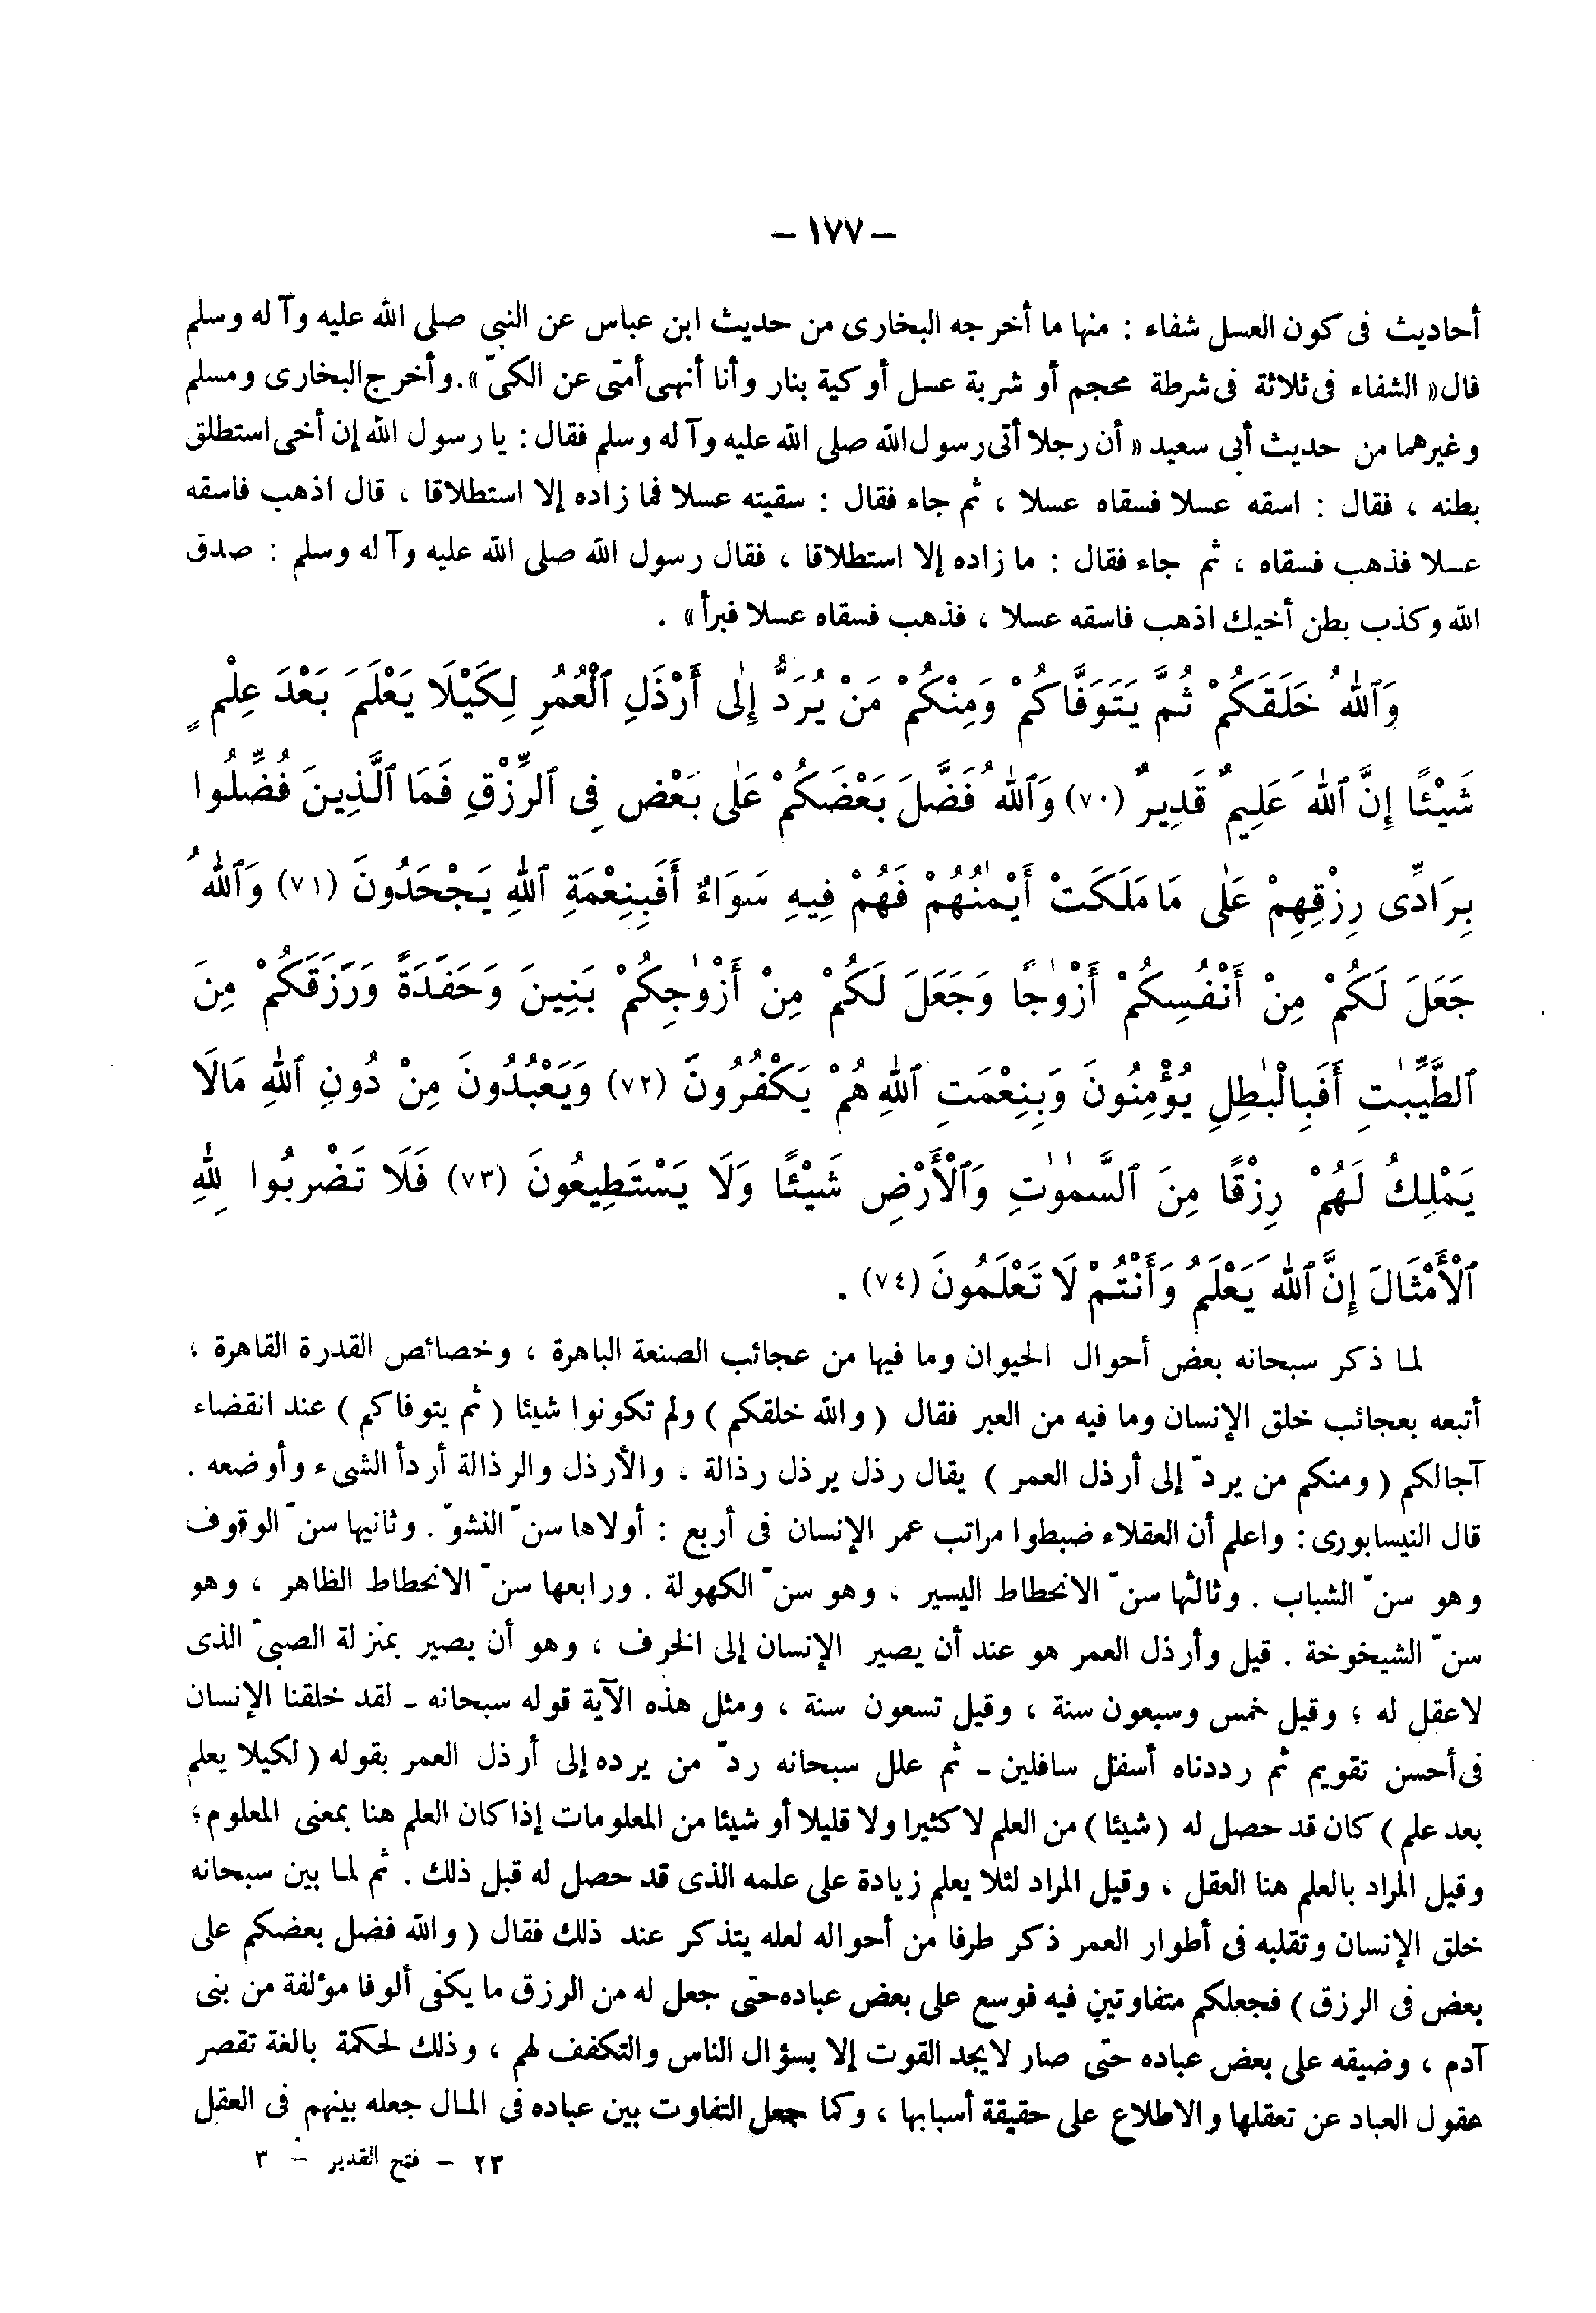 – ١٧٧ –
أحاديث فى كون العسل شفاء : منها ما أخرجه البخارى من حديث ابن عباس عن النبى صلى الله عليه وآله وسلم
قال « الشفاء فى ثلاثة فى شرطة محجم أو شربة عسل أو كية بنار وأنا أنهى أمتى عن الكىّ ». وأخرج البخارى ومسلم
وغيرهما من حديث أبى سعيد « أن رجلا أتى رسول الله صلى الله عليه وآله وسلم فقال : يا رسول الله إن أخى استطلق
بطنه ، فقال : اسقه عسلا فسقاه عسلا ، ثم جاء فقال : سقيته عسلا فما زاده إلا استطلاقا ، قال اذهب فاسقه
عسلا فذهب فسقاه ، ثم جاء فقال : ما زاده إلا استطلاقا ، فقال رسول الله صلى الله عليه وآله وسلم : صدق
الله وكذب بطن أخيك اذهب فاسقه عسلا ، فذهب فسقاه عسلا فبرأ » .
وَٱللهُ خَلَقَكُمْ ثُمَّ يَتَوَفَّاكُمْ وَمِنْكُمْ مَنْ يُرَدُّ إِلٰى أَرْذَلِ ٱلْعُمُرِ لِكَيْلَا يَعْلَمَ بَعْدَ عِلْمٍ
شَيْئًا إِنَّ ٱللهَ عَلِيمٌ قَدِيرٌ (٧٠) وَٱللهُ فَضَّلَ بَعْضَكُمْ عَلٰى بَعْضٍ فِى ٱلرِّزْقِ فَمَا ٱلَّذِينَ فُضِّلُوا
بِرَادِّى رِزْقِهِمْ عَلٰى مَا مَلَكَتْ أَيْمٰنُهُمْ فَهُمْ فِيهِ سَوَاءٌ أَفَبِنِعْمَةِ ٱللهِ يَجْحَدُونَ (٧١) وَٱللهُ
جَعَلَ لَكُمْ مِنْ أَنْفُسِكُمْ أَزْوٰجًا وَجَعَلَ لَكُمْ مِنْ أَزْوٰجِكُمْ بَنِينَ وَحَفَدَةً وَرَزَقَكُمْ مِنَ
ٱلطَّيِّبٰتِ أَفَبِالْبٰطِلِ يُؤْمِنُونَ وَبِنِعْمَتِ ٱللهِ هُمْ يَكْفُرُونَ (٧٢) وَيَعْبُدُونَ مِنْ دُونِ ٱللهِ مَالَا
يَمْلِكُ لَهُمْ رِزْقًا مِنَ ٱلسَّمٰوٰتِ وَٱلْأَرْضِ شَيْئًا وَلَا يَسْتَطِيعُونَ (٧٣) فَلَا تَضْرِبُوا لِلهِ
ٱلْأَمْثَالَ إِنَّ ٱللهَ يَعْلَمُ وَأَنْتُمْ لَا تَعْلَمُونَ (٧٤) .
لما ذكر سبحانه بعض أحوال الحيوان وما فيها من عجائب الصنعة الباهرة ، وخصائص القدرة القاهرة ،
أتبعه بعجائب خلق الإنسان وما فيه من العبر فقال ( والله خلقكم ) ولم تكونوا شيئا ( ثم يتوفاكم ) عند انقضاء
آجالكم ( ومنكم من يردّ إلى أرذل العمر ) يقال رذل يرذل رذالة ، والأرذل والرذالة أردأ الشىء وأوضعه .
قال النيسابورى : واعلم أن العقلاء ضبطوا مراتب عمر الإنسان فى أربع : أولاها سنّ النشوّ . وثانيها سنّ الوقوف
وهو سنّ الشباب . وثالثها سنّ الانحطاط اليسير ، وهو سنّ الكهولة . ورابعها سنّ الانحطاط الظاهر ، وهو
سنّ الشيخوخة . قيل وأرذل العمر هو عند أن يصير الإنسان إلى الخرف ، وهو أن يصير بمنزلة الصبىّ الذى
لاعقل له ؛ وقيل خمس وسبعون سنة ، وقيل تسعون سنة ، ومثل هذه الآية قوله سبحانه - لقد خلقنا الإنسان
فى أحسن تقويم ثم رددناه أسفل سافلين - ثم علل سبحانه ردّ من يرده إلى أرذل العمر بقوله ( لكيلا يعلم
بعد علم ) كان قد حصل له ( شيئا ) من العلم لا كثيرا ولا قليلا أو شيئا من المعلومات إذا كان العلم هنا بمعنى المعلوم ؛
وقيل المراد بالعلم هنا العقل ، وقيل المراد لئلا يعلم زيادة على علمه الذى قد حصل له قبل ذلك . ثم لما بين سبحانه
خلق الإنسان وتقلبه فى أطوار العمر ذكر طرفا من أحواله لعله يتذكر عند ذلك فقال ( والله فضل بعضكم على
بعض فى الرزق ) فجعلكم متفاوتين فيه فوسع على بعض عباده حتى جعل له من الرزق ما يكفى ألوفا مؤلفة من بنى
آدم ، وضيقه على بعض عباده حتى صار لا يجد القوت إلا بسؤال الناس والتكفف لهم ، وذلك لحكمة بالغة تقصر
عقول العباد عن تعقلها والاطلاع على حقيقة أسبابها ، وكما جعل التفاوت بين عباده فى المال جعله بينهم فى العقل
٢٣ – فتح القدير – ٣